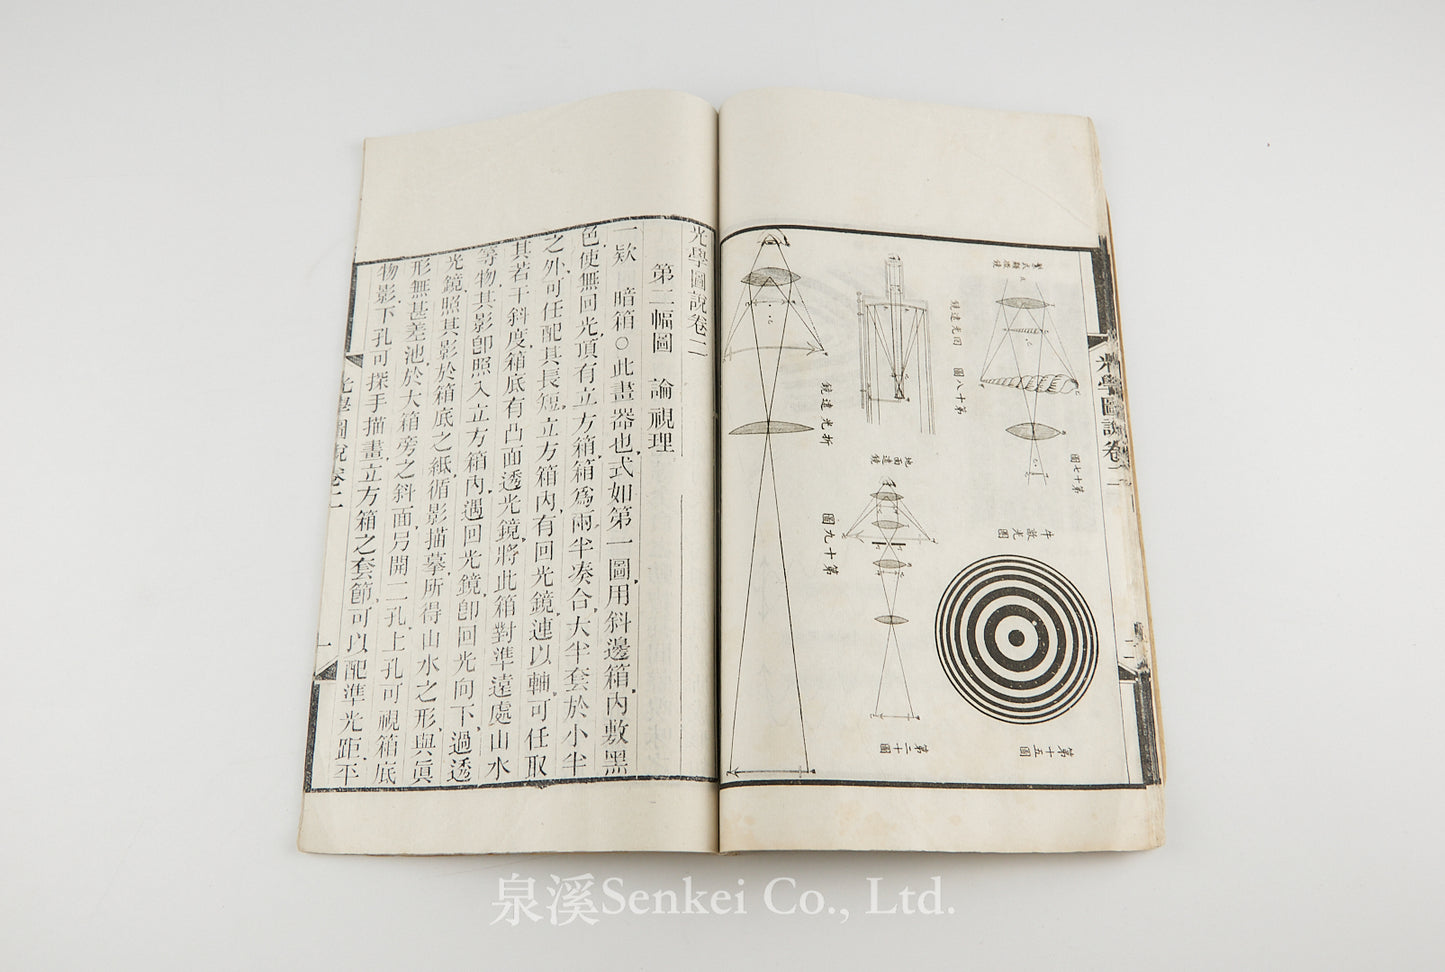 光學圖說卷二
第二幅圖　論視理
一款　暗箱○此畫器也式如第一圖用斜邊箱內敷黑
色使無回光頂有立方箱箱爲兩半湊合大半套於小半
之外可任配其長短立方箱內有回光鏡連以軸可任取
其若干斜度箱底有凸面透光鏡將此箱對準遠處山水
等物其影卽照入立方箱內遇回光鏡卽回光向下過透
光鏡照其影於箱底之紙循影描摹所得山水之形與眞
形無甚差池於大箱旁之斜面另開二孔上孔可視箱底
物影下孔可探手描畫立方箱之套節可以配準光距平
光學圖說卷二
一
光學圖說卷二
顯微鏡
第十七圖
回光遠鏡
第十八圖
折光遠鏡
第十九圖
地面遠鏡
第二十圖
牛敦光圖
第十五圖
泉溪Senkei Co., Ltd.